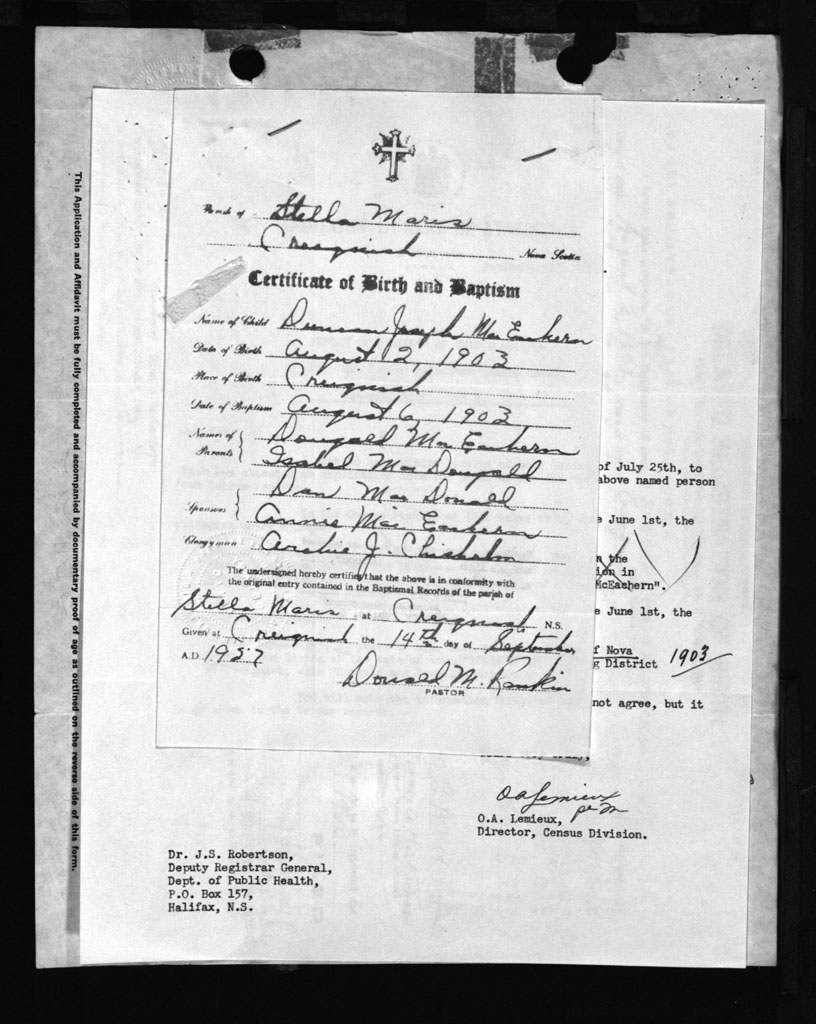 This Application and Affidavit must be fully completed and accompanied by documentary proof of age as outlined on the reverse side of this form.
Parish of Stella Maris
Creignish Nova Scotia
Certificate of Birth and Baptism
Name of Child Duncan Joseph MacEachern
Date of Birth August 2, 1903
Place of Birth Creignish
Date of Baptism August 6, 1903
Names of Parents Dougald MacEachern
Isabel MacDougall
Sponsors Dan MacDonald
Annie MacEachern
Clergyman Archie J. Chisholm
The undersigned hereby certifies that the above is in conformity with
the original entry contained in the Baptismal Records of the parish of
Stella Maris at Creignish N.S.
Given at Creignish the 14th day of September
A.D. 1957
Donald M. Rankin
PASTOR
of July 25th, to
above named person
June 1st, the
the
in
McEachern".
June 1st, the
Nova
District 1903
not agree, but it
O A Lemieux
per
O.A. Lemieux,
Director, Census Division.
Dr. J.S. Robertson,
Deputy Registrar General,
Dept. of Public Health,
P.O. Box 157,
Halifax, N.S.